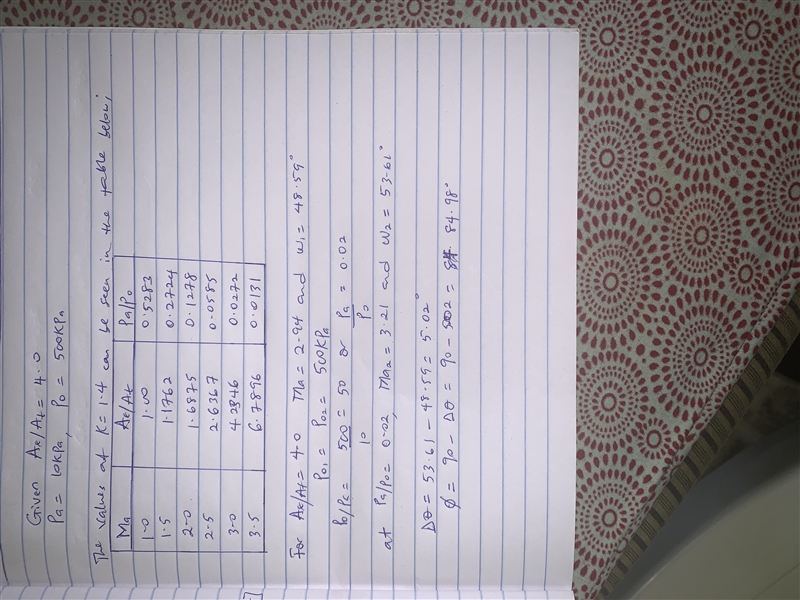 Given Ae/At = 4.0
Pa = 10KPa, Po = 500KPa
The values at K = 1.4 can be seen in the table below;
Ma Ae/At Pa/Po
1.0 1.00 0.5283
1.5 1.1762 0.2724
2.0 1.6875 0.1278
2.5 2.6367 0.0585
3.0 4.2346 0.0272
3.5 6.7896 0.0131
For Ae/At = 4.0 Ma = 2.94 and ω1 = 48.59°
Po1 = Po2 = 500KPa
Po/Pc = 500/10 = 50 or Pa/Po = 0.02
at Pa/Po = 0.02, Ma2 = 3.21 and ω2 = 53.61°
Δθ = 53.61 - 48.59 = 5.02°
Ø = 90 - Δθ = 90 - 5.02 = 84.98°